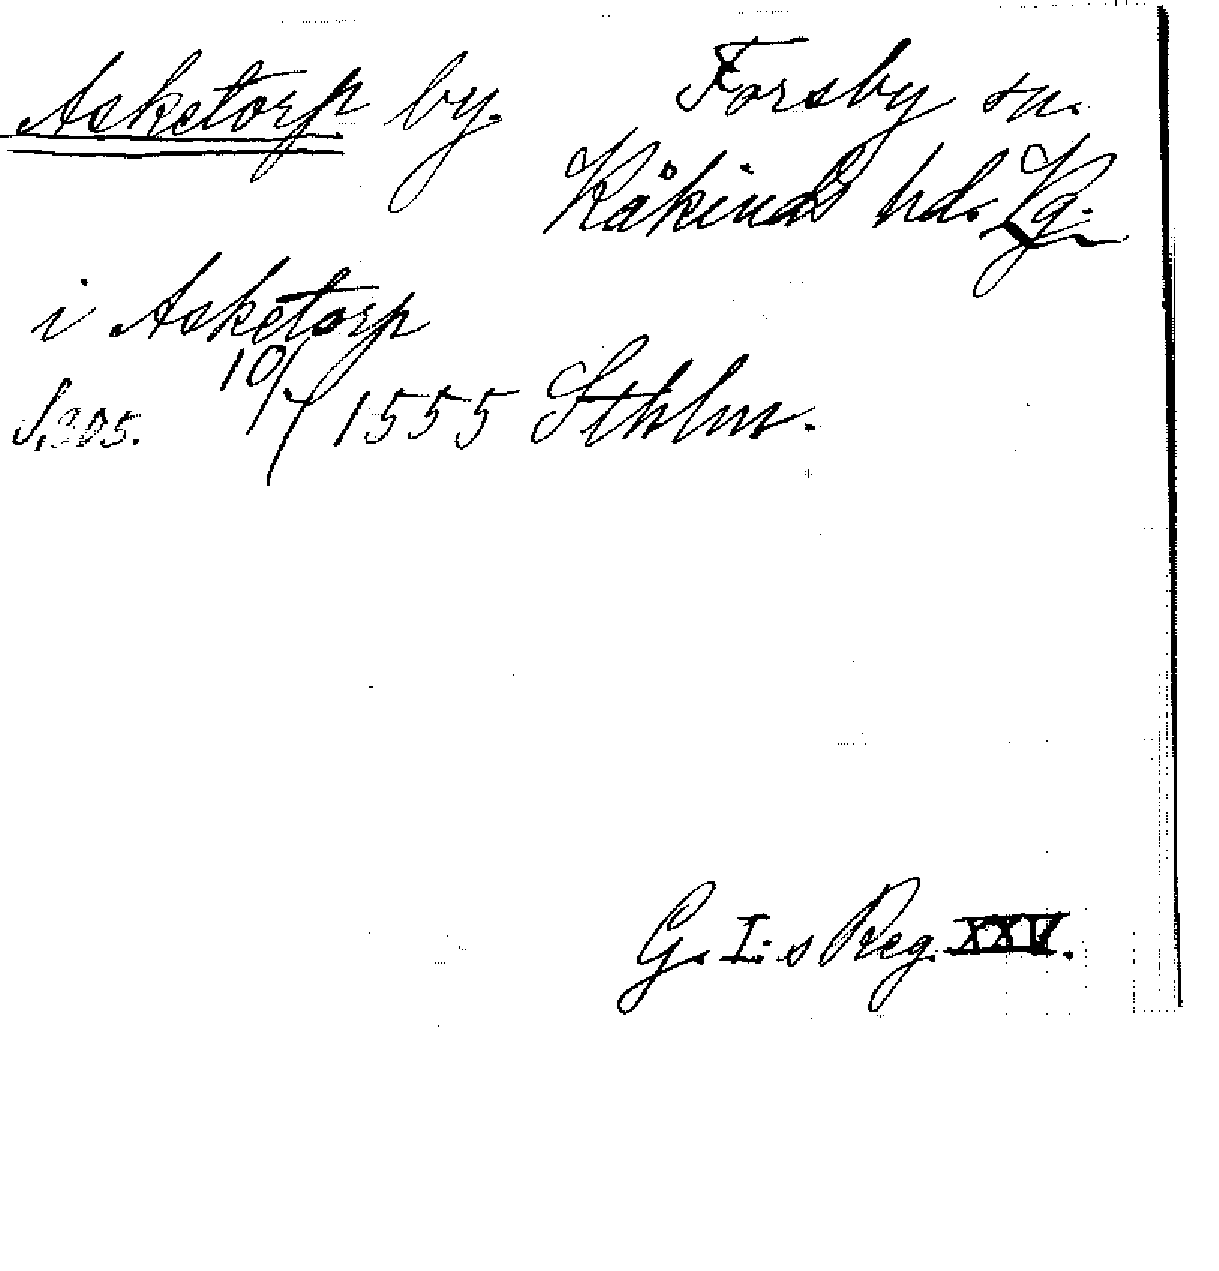 Asketorp by. Forsby sn.
Kåkinds hd. Vg.
i Asketorp
S. 305. 10/7 1555 Sthlm.
G. I:s Reg. XXV.